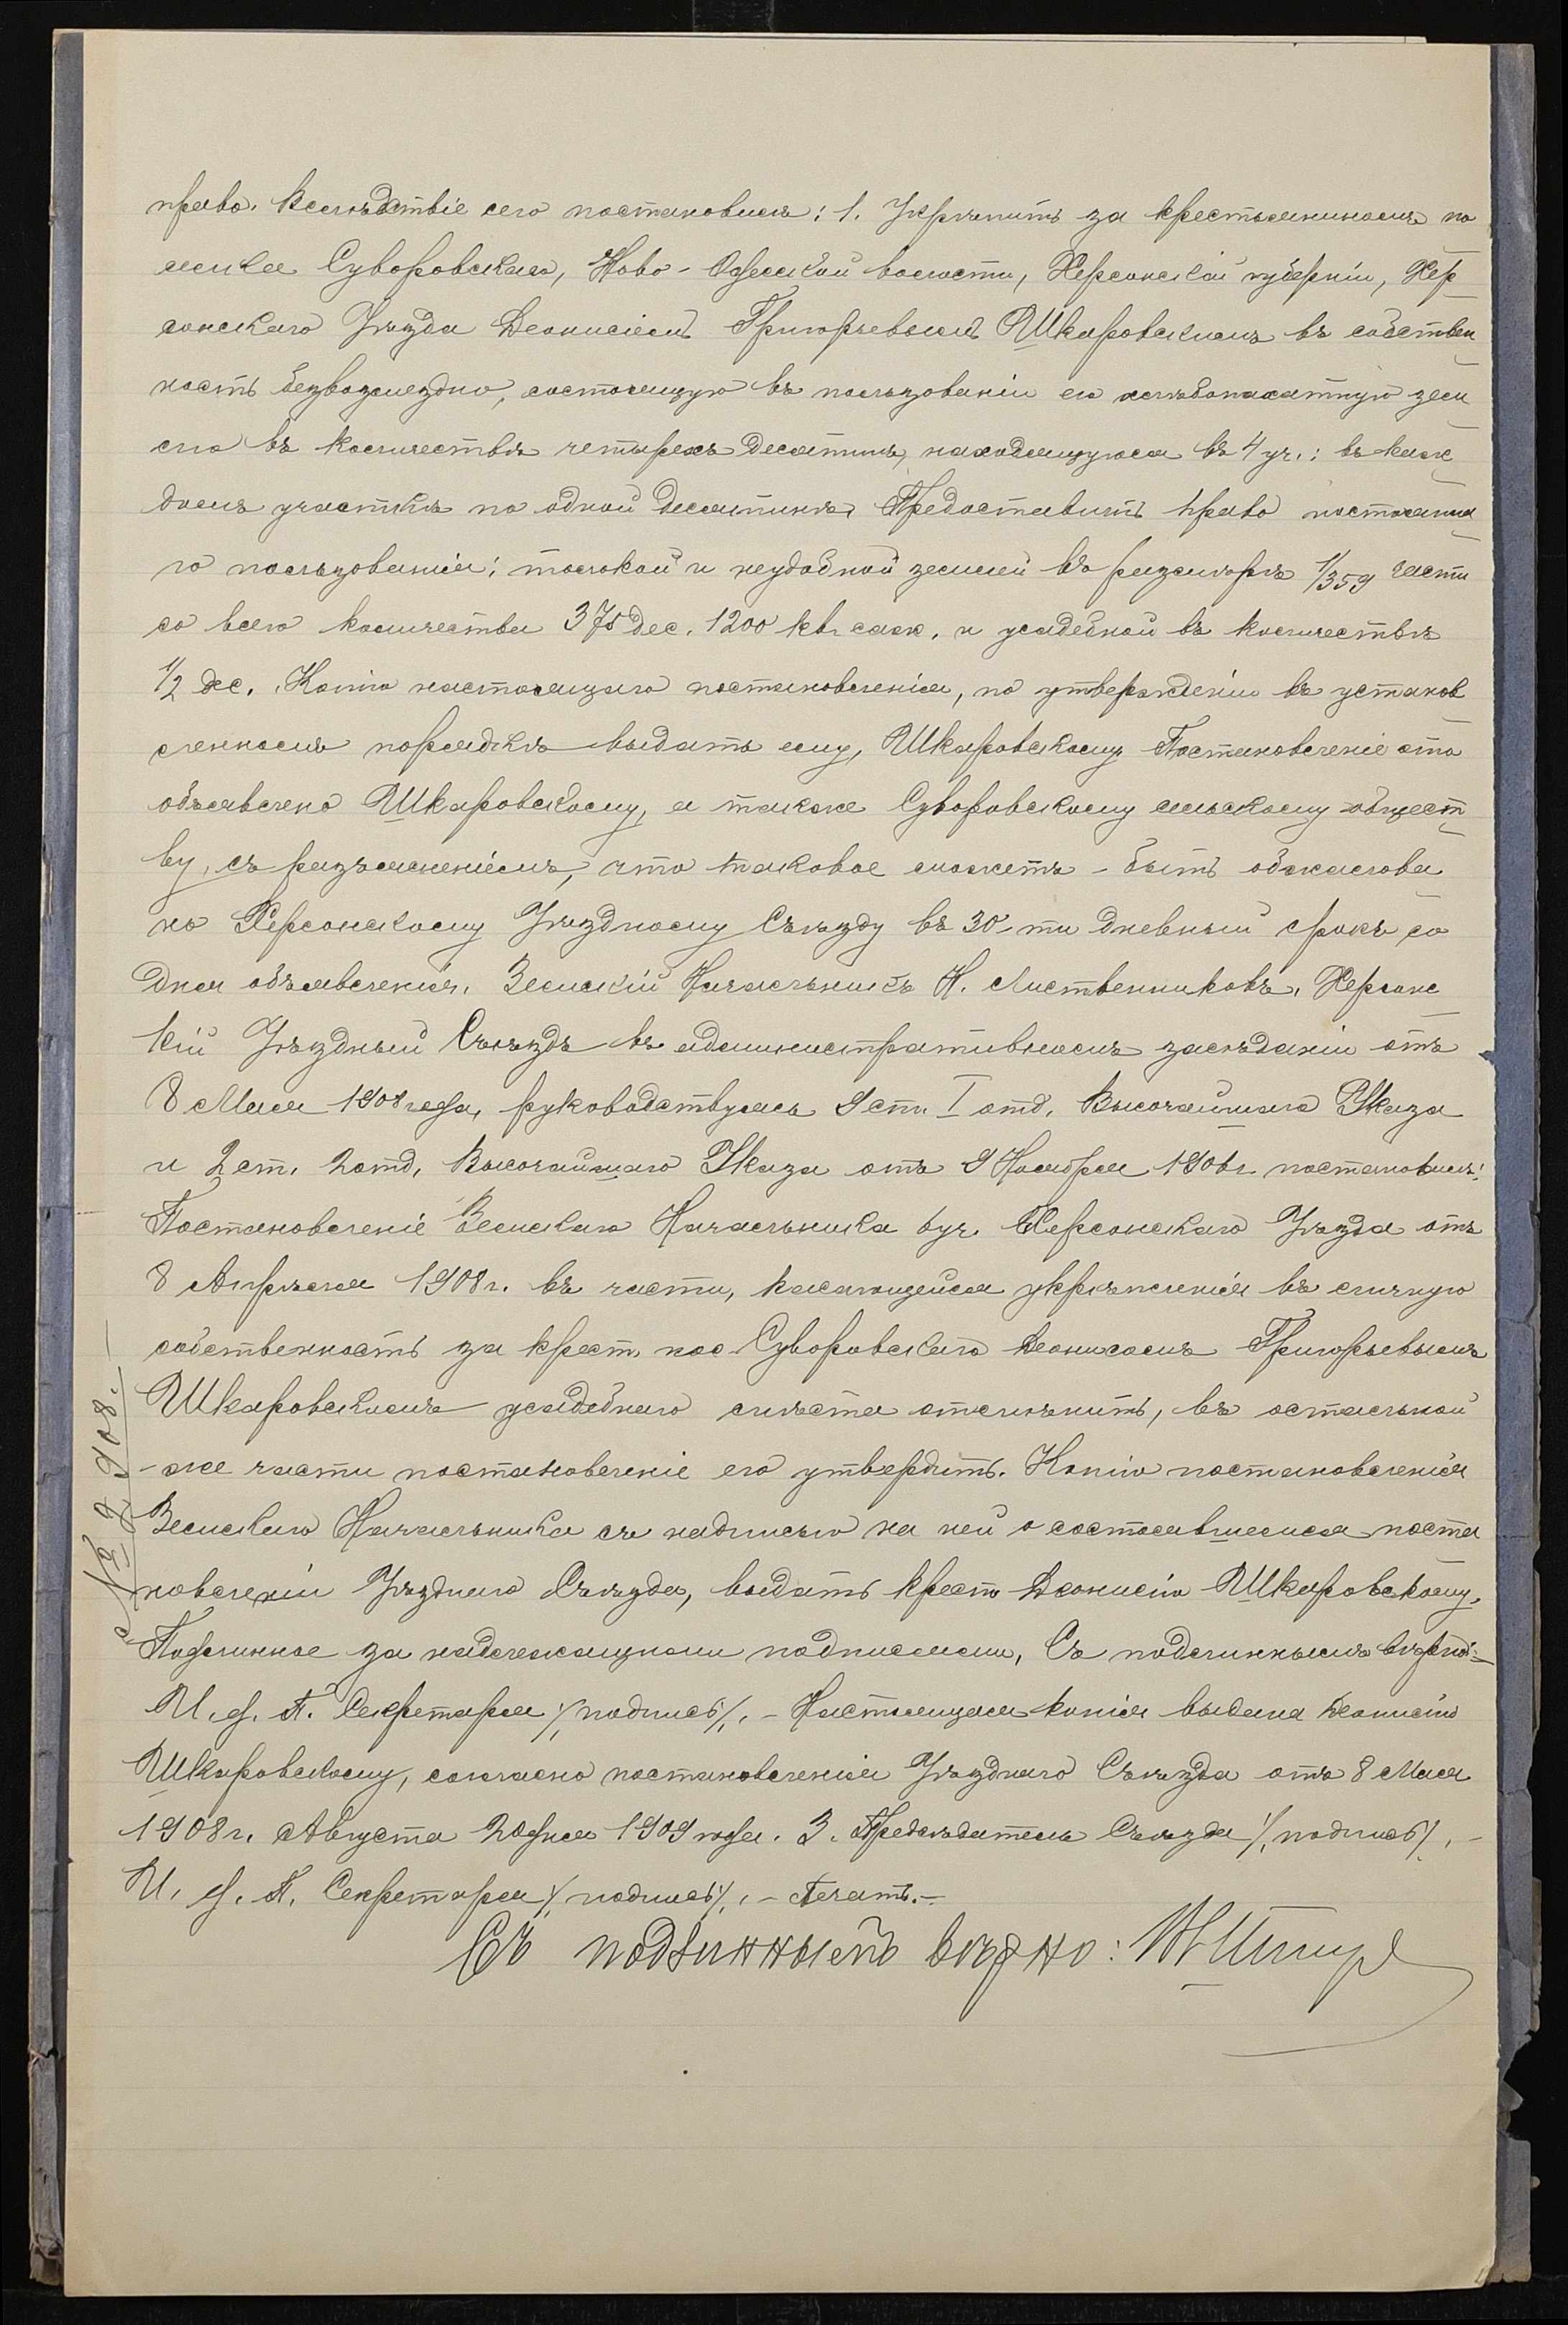 право. Вслѣдствіе сего постановилъ: 1. Укрѣпить за крестьяниномъ по
селка Суворовскаго, Ново-Одесской волости, Херсонской губерніи, Хер
сонскаго Уѣзда Деонисіемъ Григорьевымъ Шкаровскимъ въ собствен
ность безвозмездно, состоящую въ пользованіи его хлѣбопахатную зем
лю въ количествѣ четырехъ десятинъ, находящуюся въ 4 уч.: въ каж
домъ участкѣ по одной десятинѣ. Предоставить право постоянна
го пользованія: толокой и неудобной землей въ размѣрѣ 1/359 части
со всего количества 375 дес. 1200 кв. саж. и усадебной въ количествѣ
1/2 дес. Копію настоящаго постановленія, по утвержденіи въ установ
ленномъ порядкѣ выдать ему, Шкаровскому. Постановленіе это
объявлено Шкаровскому, а также Суворовскому сельскому общест
ву, съ разъясненіемъ, что таковое можетъ-быть обжалова
но Херсонскому Уѣздному Съѣзду въ 30-ти дневный срокъ со
дня объявленія. Земскій Начальникъ Н. Лиственниковъ. Херсонс
кій Уѣздный Съѣздъ въ административномъ засѣданіи отъ
8 Мая 1908 года, руководствуясь 9 ст. I отд. Высочайшаго Указа
и 2 ст. 2 отд. Высочайшаго Указа отъ 9 Ноября 1906 г. постановилъ:
Постановленіе Земскаго Начальника 6 уч. Херсонскаго Уѣзда отъ
8 Апрѣля 1908 г. въ части, касающейся укрѣпленія въ личную
собственность за крест. пос. Суворовскаго Деонисомъ Григорьевымъ
Шкаровскимъ усадебнаго мѣста отмѣнить, въ остальной
-же части постановленіе его утвердить. Копію постановленія
Земскаго Начальника съ надписью на ней о состоявшемся поста
новленіи Уѣзднаго Съѣзда, выдать крест. Деонисію Шкаровскому.
Подлинное за надлежащими подписями, Съ подлиннымъ вѣрно:
И. д. П. Секретаря /подпись/. - Настоящая копія выдана Деонисію
Шкаровскому, согласно постановленія Уѣзднаго Съѣзда отъ 8 Мая
1908 г. Августа 20 дня 1909 года. З. Предсѣдатель Съѣзда /подпись/. -
И. д. П. Секретаря /подпись/. - Печать.-
Съ подлиннымъ вѣрно:
908.